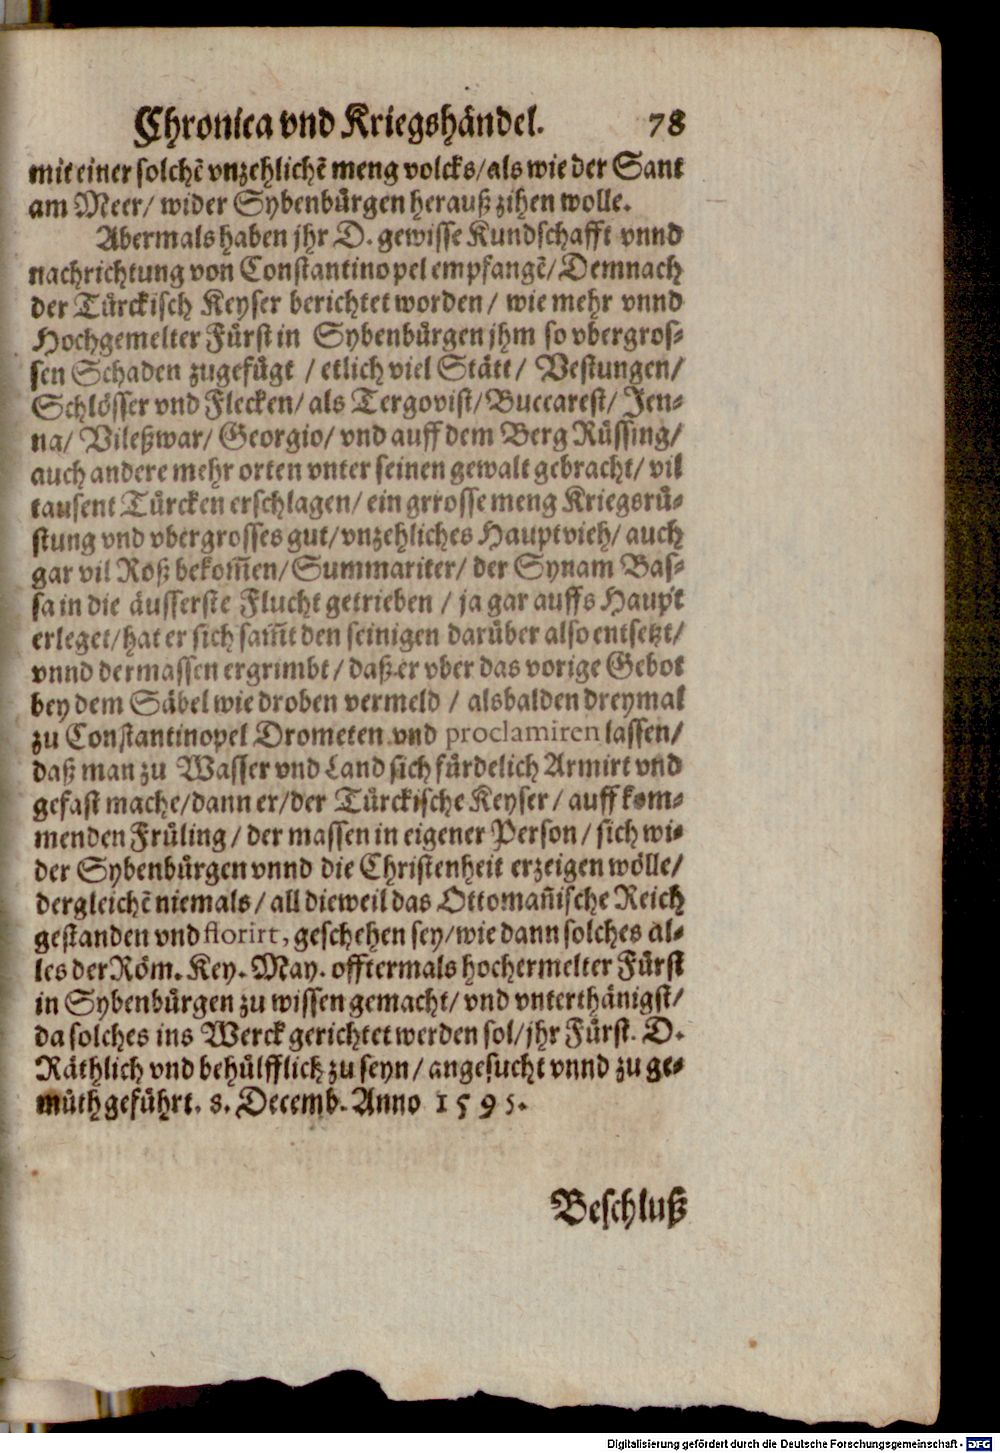 Chronica vnd Kriegshändel. 78
mit einer solchẽ vnzehlichẽ meng volcks/als wie der Sant
am Meer/ wider Sybenbürgen herauß zihen wolle.
Abermals haben jhr D. gewisse Kundschafft vnnd
nachrichtung von Constantinopel empfangẽ/ Demnach
der Türckisch Keyser berichtet worden/ wie mehr vnnd
Hochgemelter Fürst in Sybenbürgen jhm so vbergros-
sen Schaden zugefügt / etlich viel Stätt/ Vestungen/
Schlösser vnd Flecken/ als Tergovist/ Buccarest/ Jen-
na/ Vileßwar/ Georgio/ vnd auff dem Berg Rüssing/
auch andere mehr orten vnter seinen gewalt gebracht/ vil
tausent Türcken erschlagen/ ein grrosse meng Kriegsrü-
stung vnd vbergrosses gut/ vnzehliches Hauptvieh/ auch
gar vil Roß bekom̃en/ Summariter/ der Synam Bas-
sa in die äusserste Flucht getrieben / ja gar auffs Haupt
erleget/ hat er sich sam̃t den seinigen darüber also entsetzt/
vnnd dermassen ergrimbt/ daß er vber das vorige Gebot
bey dem Säbel wie droben vermeld / alsbalden dreymal
zu Constantinopel Drometen vnd proclamiren lassen/
daß man zu Wasser vnd Land sich fürdelich Armirt vnd
gefast mache/dann er/der Türckische Keyser/ auff kom-
menden Früling/ der massen in eigener Person/ sich wi-
der Sybenbürgen vnnd die Christenheit erzeigen wölle/
dergleichẽ niemals/ all dieweil das Ottomañische Reich
gestanden vnd florirt, geschehen sey/wie dann solches al-
les der Röm. Key. May. offtermals hochermelter Fürst
in Sybenbürgen zu wissen gemacht/ vnd vnterthänigst/
da solches ins Werck gerichtet werden sol/jhr Fürst. D.
Räthlich vnd behülfflich zu seyn/ angesucht vnnd zu ge-
müth geführt. 8. Decemb. Anno 1595.
Beschluß
Digitalisierung gefördert durch die Deutsche Forschungsgemeinschaft - DFG